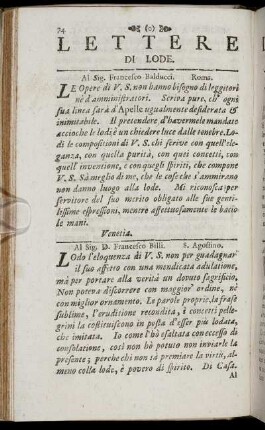 74
LETTERE
DI LODE.
Al Sig. Francesco Balducci. Roma.
LE Opere di V. S. non hanno bisogno di leggitori
nè d'ammiratori. Scriva pure, ch' ogni
sua linea sarà d'Apelle ugualmente desiderata &
inimitabile. Il pretendere d'havermele mandate
acciochè le lodi è un chiedere luce dalle tenebre. Lo-
di le compositioni di V. S. chi scrive con quell'ele-
ganza, con quella purità, con quei concetti, con
quell' inventione, e con quegli spiriti, che compone
V. S. Sà meglio di me, che le cose che s'ammirano
non danno luogo alla lode. Mi riconosca per
servitore del suo merito obligato alle sue genti-
lissime espressioni, mentre affettuosamente le bacio
le mani.
Venetia.
Al Sig. D. Francesco Billi. S. Agostino.
LOdo l'eloquenza di V. S. non per guadagnar
il suo affetto con una mendicata adulatione,
mà per portare alla verità un dovuto sagrificio.
Non poteva discorrere con maggior ordine, nè
con miglior ornamento. Le parole proprie, la frase
sublime, l'eruditione recondita, i concetti pelle-
grini la costituiscono in posto d'esser più lodata,
che imitata. Io come l'hò esaltata con eccesso di
consolatione, così non hò potuto non inviarle la
presente; perche chi non sà premiare la virtù, al-
meno colla lode, è povero di spirito. Di Casa.
Al